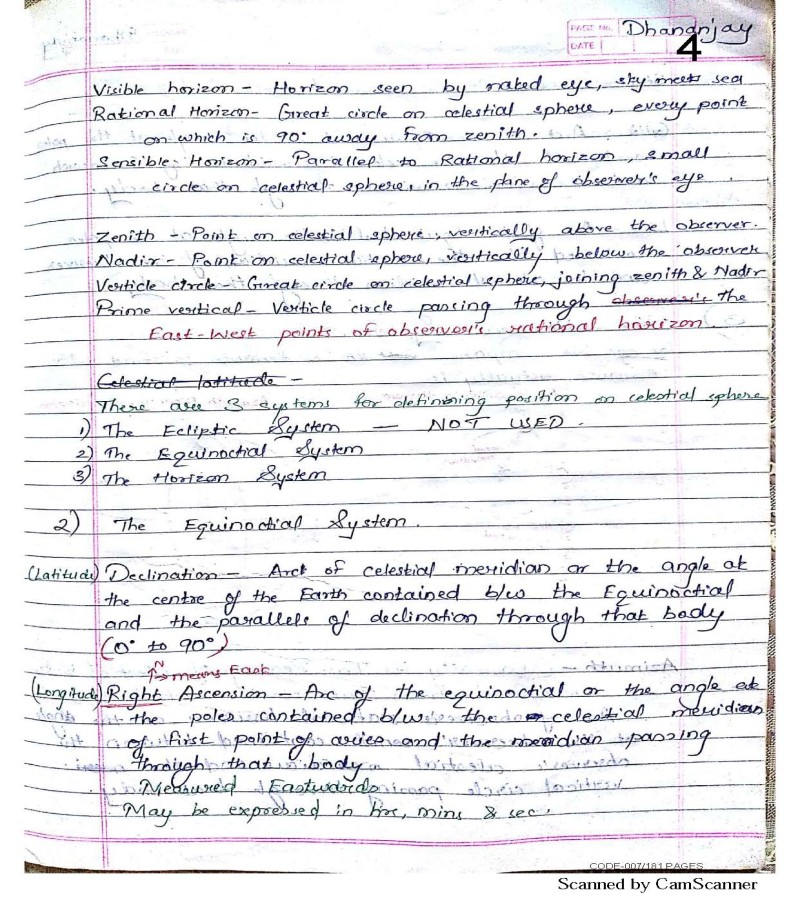 PAGE No. Dhananjay
DATE 4
Visible horizon - Horizon seen by naked eye, sky meets sea
Rational Horizon - Great circle on celestial sphere, every point
on which is 90° away from zenith.
Sensible Horizon - Parallel to Rational horizon, small
circle on celestial sphere, in the plane of observer's eye.
Zenith - Point on celestial sphere, vertically above the observer.
Nadir - Point on celestial sphere, vertically below the observer
Verticle circle - Great circle on celestial sphere, joining zenith & Nadir
Prime vertical - Verticle circle passing through observer's the
East-West points of observer's rational horizon.
Celestial latitude -
There are 3 systems for definining position on celestial sphere
1) The Ecliptic System — NOT USED.
2) The Equinoctial System
3) The Horizon System
2) The Equinoctial System.
(Latitude) Declination - Arct of celestial meridian or the angle at
the centre of the Earth contained b/w the Equinoctial
and the parallels of declination through that body
(0° to 90°)
means East
(Longitude) Right Ascension - Arc of the equinoctial or the angle at
the poles contained b/w the celestial meridian
of first point of aries and the meridian passing
through that body
Measured Eastwards
May be expressed in hrs, mins & sec.
CODE-007/181 PAGES
Scanned by CamScanner